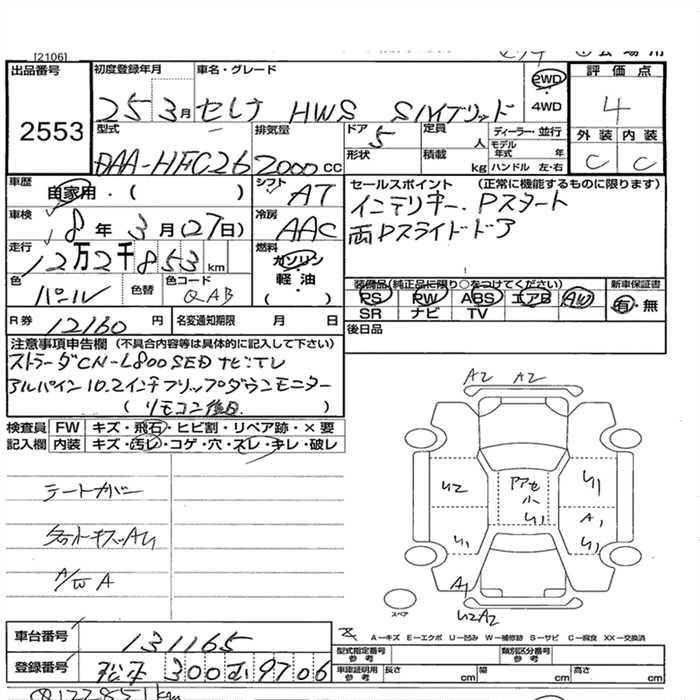 [2106]
出品番号
2553
初度登録年月
25 3月
車名・グレード
セレナ HWS Sハイブリッド
2WD
4WD
評価点
4
外装 内装
C C
型式
DAA-HFC26
排気量
2000cc
ドア
5
形状
定員
人
積載
kg
ディーラー・並行
モデル年式 年
ハンドル 左・右
車歴
自家用・( )
シフト
AT
車検
8年3月(27日)
冷房
AAC
走行
12万2千853km
燃料
ガソリン
軽油
( )
色
パール
色替
色コード
QAB
セールスポイント (正常に機能するものに限ります)
インテリキー. Pスタート
両Pスライドドア
装備品(純正品に限り○をつけてください)
PS PW ABS エアB AW
SR ナビ TV
新車保証書
有・無
後日品
R券 12160円
名変通知期限 月 日
注意事項申告欄 (不具合内容等は具体的に記入して下さい)
ストラーダCN-L800SED ナビTV
アルパイン10.2インチフリップダウンモニター
(リモコン後日 )
検査員 FW キズ・飛石・ヒビ割・リペア跡・×要
記入欄 内装 キズ・汚レ・コゲ・穴・スレ・キレ・破レ
A/W A
A2 A2
A1
A1
スペア
A-キズ E-エクボ U-凹み W-補修跡 S-サビ C-腐食 XX-交換済
車台番号
131165
登録番号
松本 300 9706
型式指定番号
参考
類別区分番号
参考
車庫証明用
参考
長さ cm
幅 cm
高さ cm